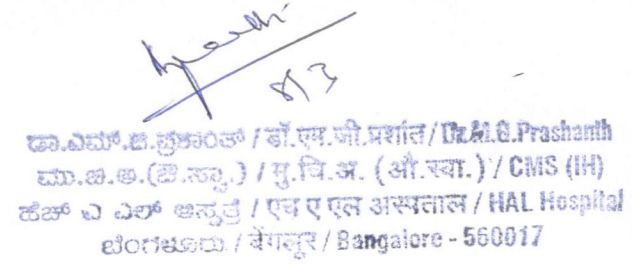 ಡಾ.ಎಮ್.ಜಿ.ಪ್ರಶಾಂತ / डॉ.एम.जी.प्रशांत / Dr.M.G.Prashanth
ಮು.ಚಿ.ಅ.(ಔ.ಸ್ವಾ.) / मु.चि.अ. (औ.स्वा.) / CMS (IH)
ಹೆಚ್ ಎ ಎಲ್ ಆಸ್ಪತ್ರೆ / एच ए एल अस्पताल / HAL Hospital
ಬೆಂಗಳೂರು / बेंगलूर / Bangalore - 560017